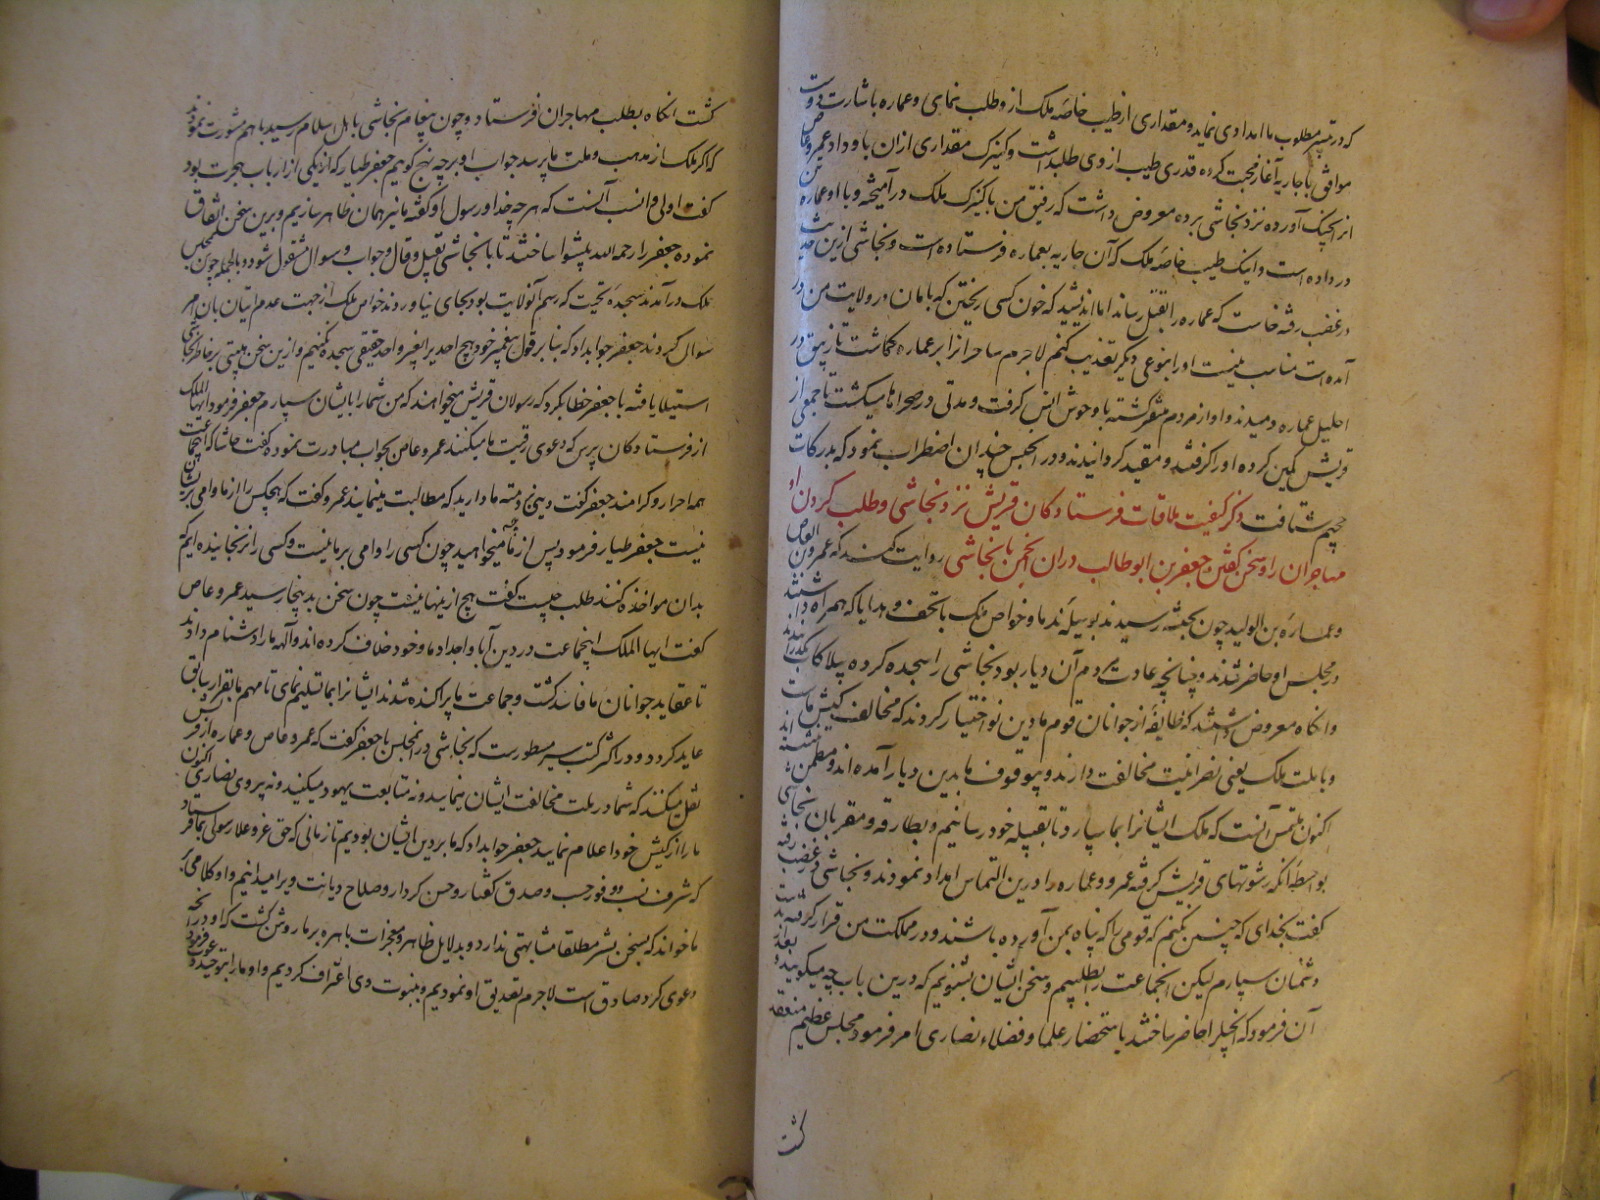 که در تیسیر مطلوب ما امدادی نماید و مقداری از طیب خاصهٔ ملک ازو طلب نمای و عماره باشارت دوست
موافق با جاریه آغاز محبت کرده قدری طیب از وی طلب داشت و کنیزک مقداری ازان باو داد عمرو عاص
انرا بچنک آورده نزد نجاشی برده معروض داشت که رفیق من با کنیزک ملک در آمیخته و با او عماره تن
در داده است و اینک طیب خاصه ملک که آن جاریه بعماره فرستاده است و نجاشی ازین حدیث
در غضب رفته خواست که عماره را بقتل رساند اما اندیشید که خون کسی ریختن که بامان در ولایت من در
آمده است مناسب نیست او را بنوعی دیگر تعذیب کنم لاجرم ساحرانرا بر عماره گماشت تا زیبق در
احلیل عماره دمیدند و او از مردم متنفر گشته با وحوش انس گرفت و مدتی در صحراها میکشت تا جمعی از
قریش کمین کرده او را گرفتند و مقید گردانیدند و در انحبس چندان اضطراب نمود که بدرکات
جحیم شتافت ذکر کیفیت ملاقات فرستادکان قریش نزد نجاشی و طلب کردن او
مهاجران را و سخن گفتن جعفر بن ابو طالب در ان انجمن با نجاشی روایت کنند که عمرو بن العاص
و عماره بن الولید چون بحبشه رسیدند بوسیله ندما و خواص ملک با تحف و هدایا که همراه داشتند
در مجلس او حاضر شدند و چنانچه عادت مردم آن دیار بود نجاشی را سجده کرده پیلاکات بگذرانیدند
و انکاه معروض داشتند که طایفهٔ از جوانان قوم ما دین نو اختیار کردند که مخالف کیش ماست
و با ملت ملک یعنی نصرانیت مخالفت دارند و بیوقوف ما بدین دیار آمده اند و مطمئن نشسته اند
اکنون ملتمس آنست که ملک ایشانرا بما سپارد تا بقبیله خود رسانیم و بطارقه و مقربان نجاشی
بواسطه آنکه رشوتهای قریش گرفته عمرو و عماره را درین التماس امداد نمودند و نجاشی در غضب رفته
گفت بخدای که چنین نکنم که قومی را که پناه بمن آورده باشند و در مملکت من قرار گرفته بدست
دشمنان سپارم لیکن انجماعت را بطلبیم و سخن ایشان بشنویم که درین باب چه میکویند و بعد از
آن فرمود که انجیلرا حاضر ساختند باستحضار علما و فضلاء نصاری امر فرمود مجلس عظیم منعقد
گشت
گشت انکاه بطلب مهاجران فرستاد و چون پیغام نجاشی باهل اسلام رسید با هم مشورت نمودند
که اگر ملک از مذهب و ملت ما پرسد جواب او بر چه نهج گوییم جعفر طیار که یکی از ارباب هجرت بود
گفت اولی و انسب آنست که هر چه خدا و رسول او گفته ما نیز همان ظاهر سازیم و برین سخن اتفاق
نموده جعفر را رحمه الله پیشوا ساختند تا با نجاشی بقیل و قال و جواب و سوال مشغول شود و بالجمله چون بمجلس
ملک در آمدند سجده تحیت که رسم آنولایت بود بجای نیاوردند خواص ملک از جهت عدم اتیان بان امر
سوال کردند جعفر جواب داد که بنا بر قول پیغمبر خود هیچ احدیرا بغیر واحد حقیقی سجده نکنیم و ازین سخن هیبتی بر خاطر نجاشی
استیلا یافته با جعفر خطاب کرد که رسولان قریش میخواهند که من شما را بایشان سپارم جعفر فرمود ایها الملک
از فرستادکان پرس که دعوی رقیت ما میکنند عمرو عاص بجواب مبادرت نموده گفت حاشا که اینجماعت
همه احرار و کرامند جعفر گفت دینی در ذمه ما دارید که مطالبت مینمایند عمرو گفت که هیچکس را از ما وامی بر ایشان
نیست جعفر طیار فرمود پس از ما چه میخواهید چون کسی را وامی بر ما نیست و کسی را نرنجانیده ایم که
بدان مواخذه کنند طلب چیست گفت هیچ ازینها نیست چون سخن بدینجا رسید عمرو عاص
گفت ایها الملک اینجماعت در دین آبا و اجداد ما و خود خلاف کرده اند و آلهه ما را دشنام دادند
تا عقاید جوانان ما فاسد گشت و جماعت ما پراکنده شدند ایشانرا بما تسلیم نمای تا مهم ما بقرار سابق
عاید گردد و در اکثر کتب سیر مسطورست که نجاشی در انمجلس با جعفر گفت که عمرو عاص و عماره از قریش
نقل میکنند که شما در ملت مخالفت ایشان مینمایید و نه متابعت یهود میکنید و نه پیروی نصاری اکنون
ما را از کیش خود اعلام نمایید جعفر جوابداد که ما بر دین ایشان بودیم تا زمانی که حق عز و علا رسولی بما فرستاد
که شرف نسب و وفور حسب و صدق گفتار و حسن کردار و صلاح و دیانت ویرا میدانیم و او کلامی بر
ما خواند که بسخن بشر مطلقا مشابهتی ندارد و بدلایل ظاهره و معجزات باهره بر ما روشن گشت که او در انچه
دعوی کرد صادق است لاجرم تصدیق او نمودیم و بنبوت وی اعتراف کردیم و او ما را بتوحید دعوت فرمود